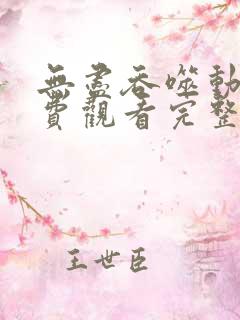 無盡吞噬動
費觀看完整
王世臣